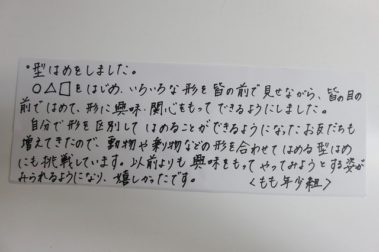 ・型はめをしました。
○△□をはじめ、いろいろな形を皆の前で見せながら、皆の目の
前ではめて、形に興味・関心をもってできるようにしました。
自分で形を区別してはめることができるようになったお友だちも
増えてきたので、動物や乗り物などの形を合わせてはめる型はめ
にも挑戦しています。以前よりも興味をもってやってみようとする姿が
みられるようになり、嬉しかったです。 〈もも年少組〉